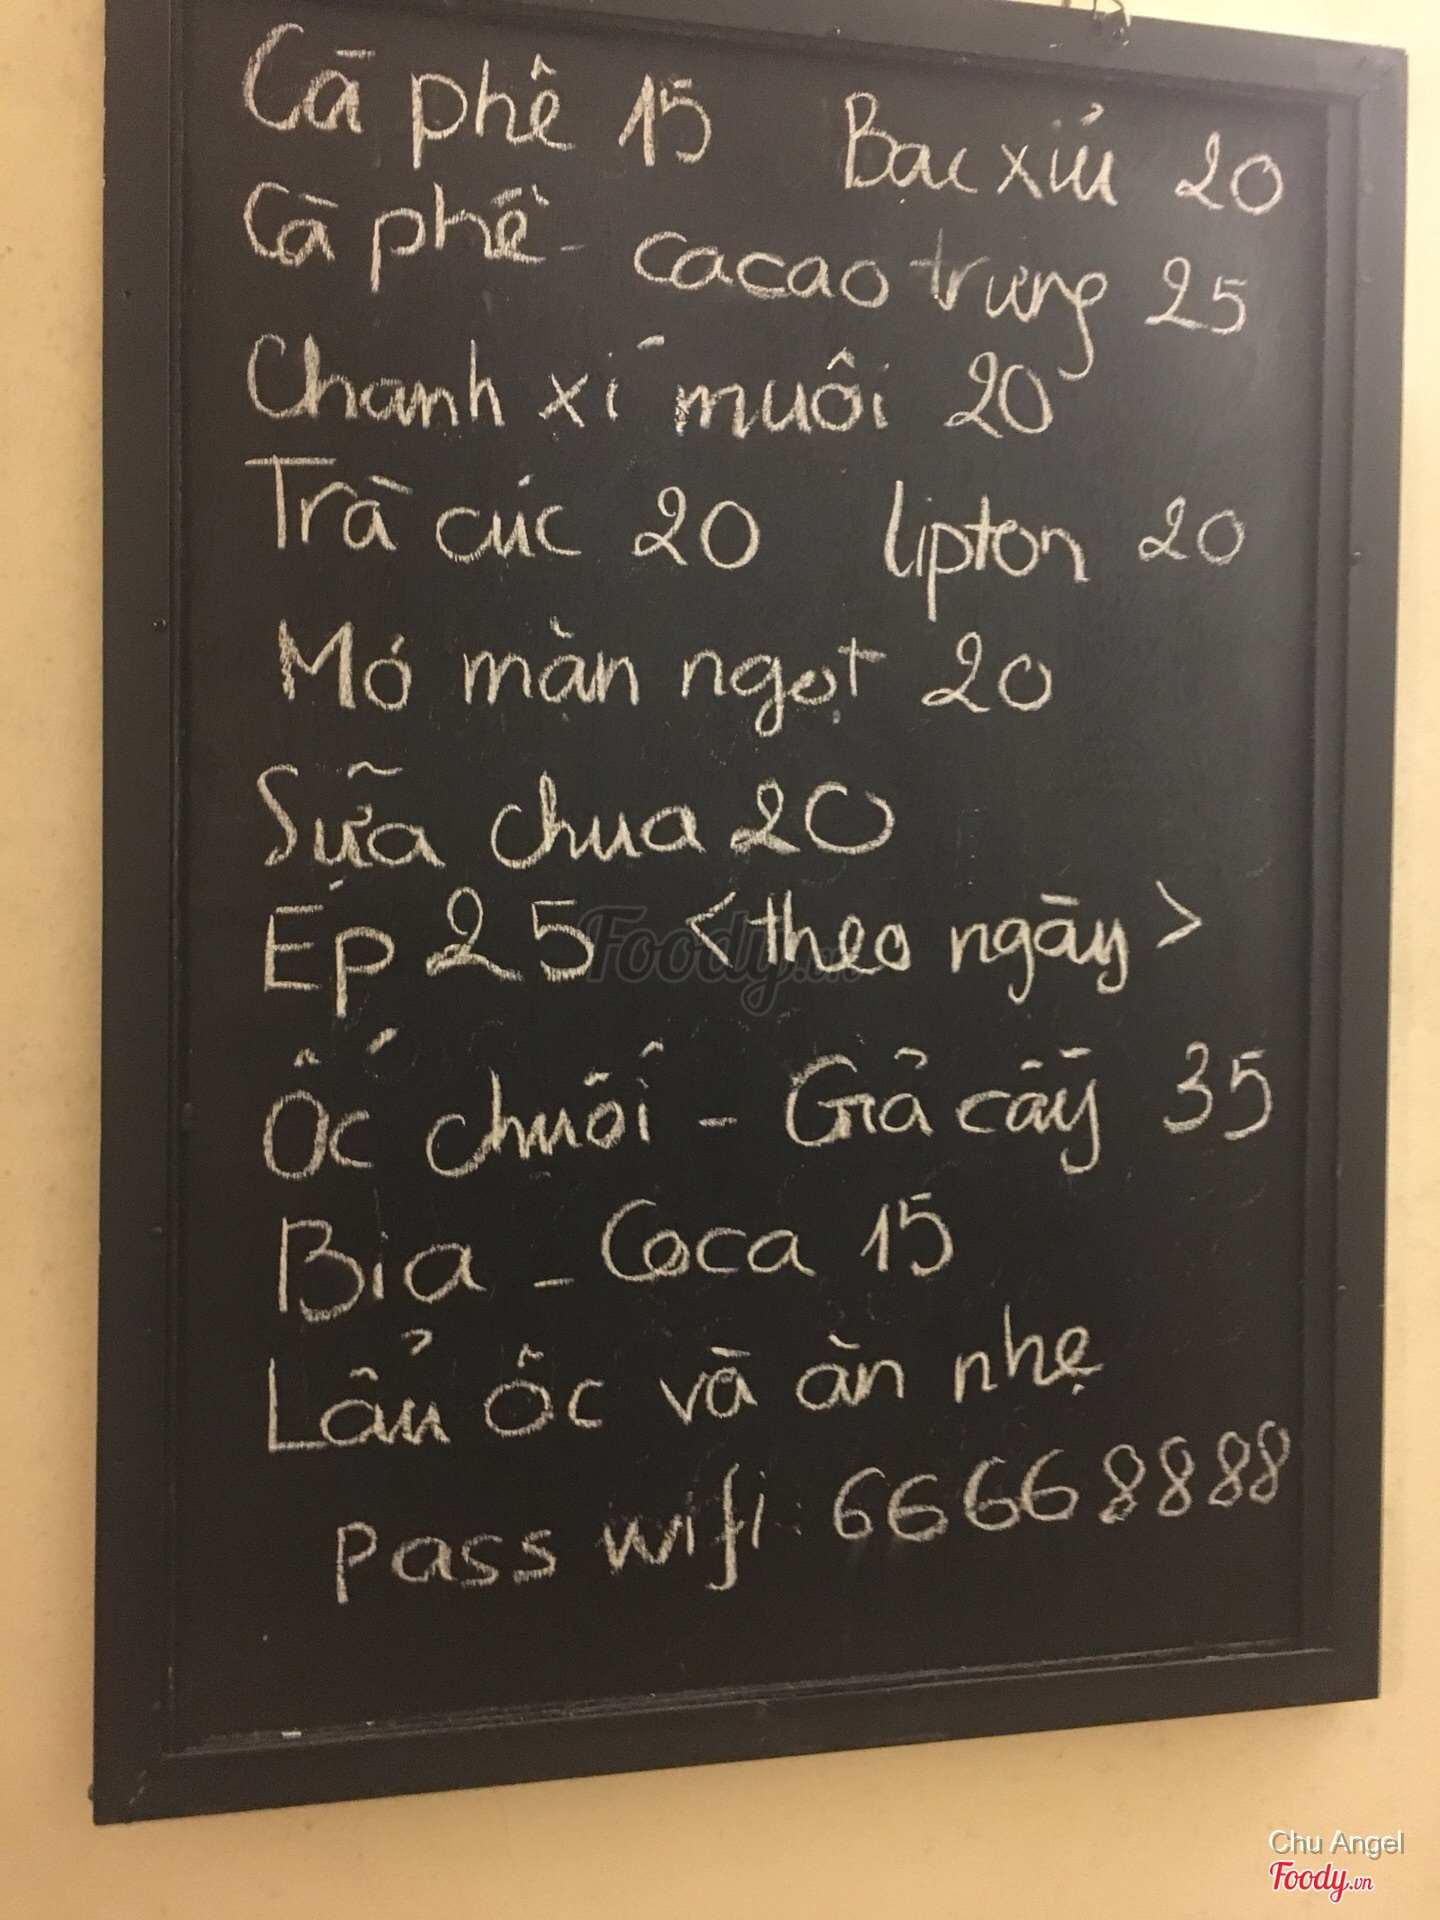 Cà phê 15 Bạc xỉu 20
Cà phê - cacao trưng 25
Chanh xí muôi 20
Trà cúc 20 lipton 20
Mó màn ngọt 20
Sữa chua 20
Ép 25 <theo ngày>
Ốc chuối - Giả cầy 35
Bia - Coca 15
Lẩu ốc và ăn nhẹ
pass wifi: 66668888
Foody.vn
Chu Angel
Foody.vn